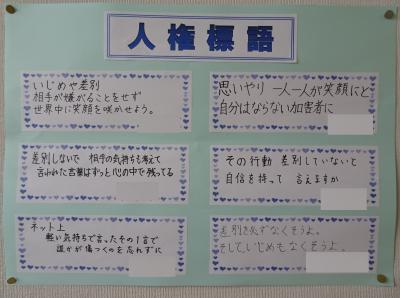 人権標語
いじめや差別
相手が嫌がることをせず
世界中に笑顔を咲かせよう。
思いやり 一人一人が笑顔にと
自分はならない加害者に
差別しないで 相手の気持ちも考えて
言われた言葉はずっと心の中で残ってる
その行動 差別していないと
自信を持って 言えますか
ネット上
軽い気持ちで言ったその1言で
誰かが傷つくのを忘れずに
差別を必ずなくそうよ。
そして、いじめもなくそうよ。